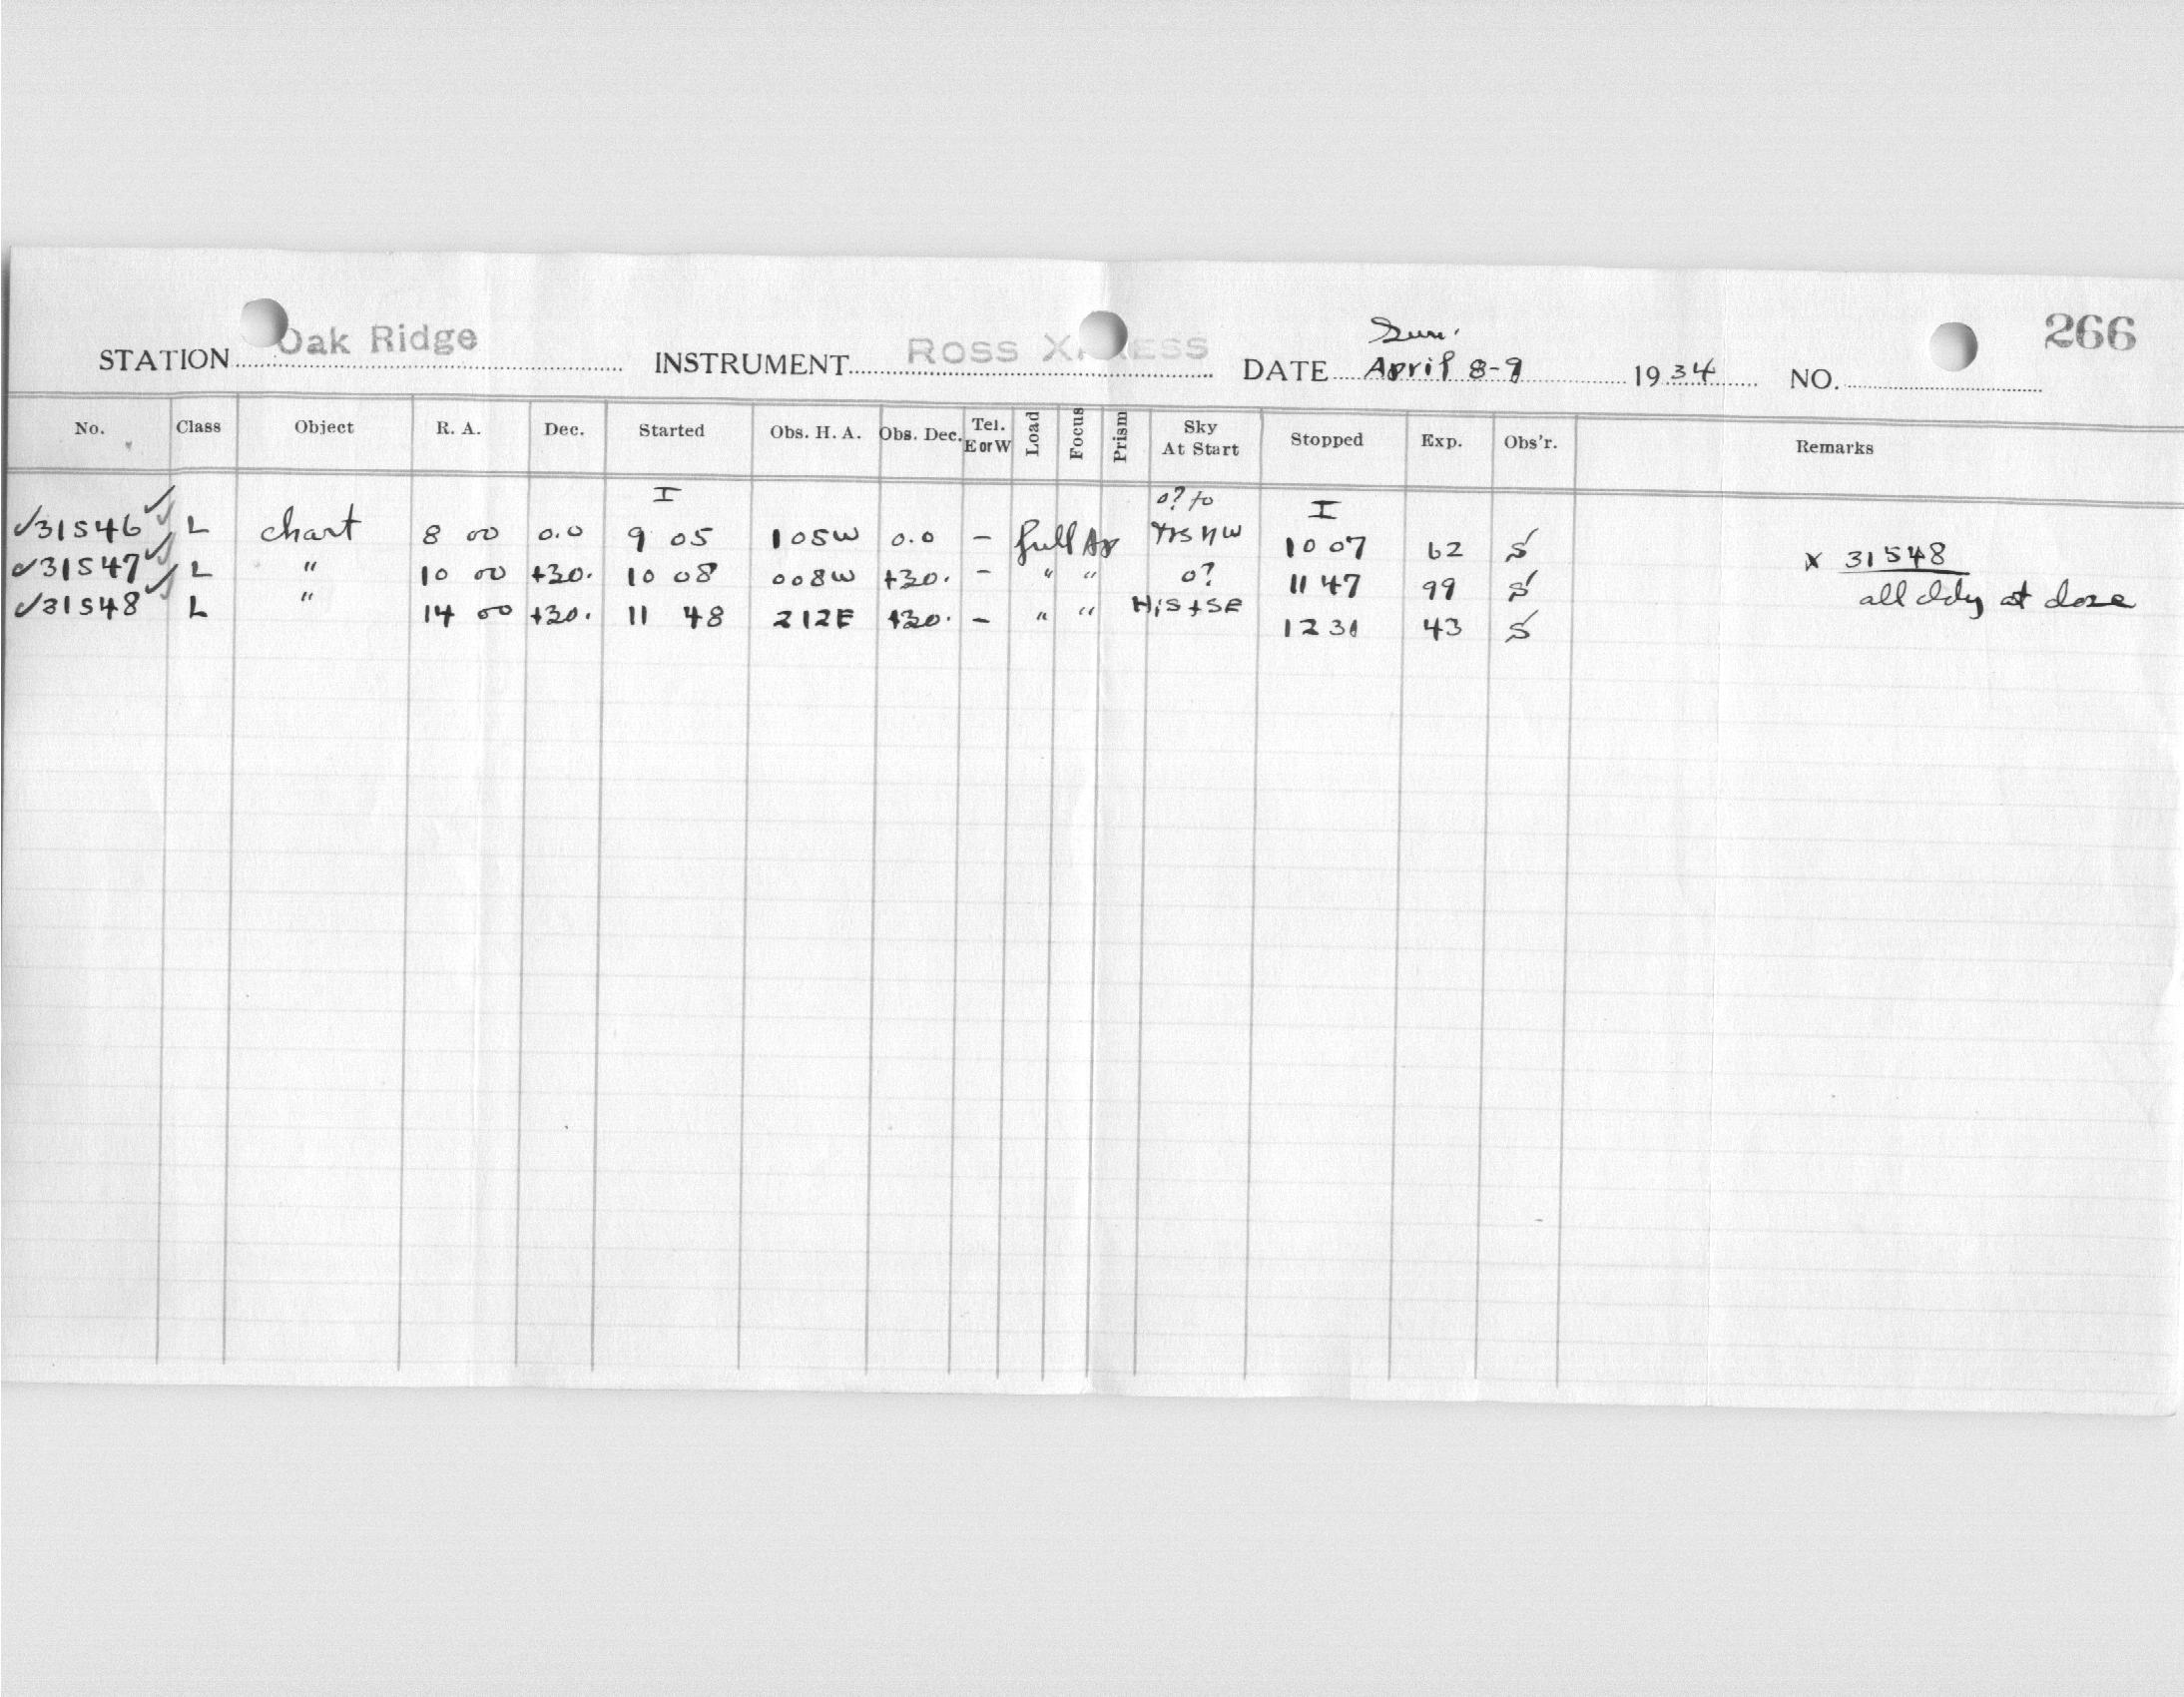 Sun.
STATION Oak Ridge INSTRUMENT ROSS X ESS DATE April 8-9 1934 NO. 266
No. Class Object R. A. Dec. Started Obs. H. A. Obs. Dec. Tel. E or W Load Focus Prism Sky At Start Stopped Exp. Obs'r. Remarks
I o? to I
✓31546 ✓✓ L chart 8 00 0.0 9 05 105W 0.0 - full Ap NW 10 07 62 S
✓31547 ✓✓ L " 10 00 +30. 10 08 008W +30. - " " o? 11 47 99 S
✓31548 ✓✓ L " 14 00 +30. 11 48 212E +30. - " " H; S + SE 12 31 43 S
x 31548
all cldy at close